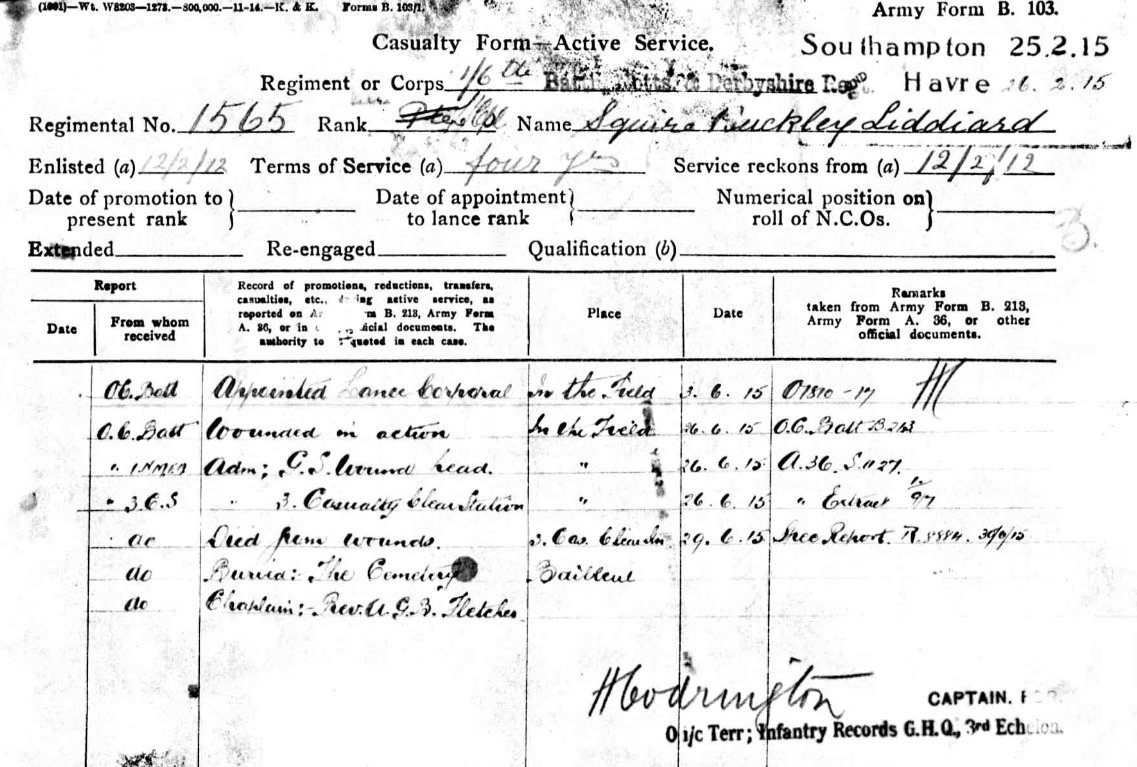 (1801)—Wt. W8203—1278.—800,000.—11-14.—K. & K. Forms B. 103/1.
Army Form B. 103.
Casualty Form—Active Service.
Southampton 25.2.15
Regiment or Corps 1/6th Batt. Notts & Derbyshire Regt. Havre 26.2.15
Regimental No. 1565 Rank Name Squire Buckley Liddiard
Enlisted (a) 12/2/12 Terms of Service (a) four yrs Service reckons from (a) 12/2/12
Date of promotion to present rank Date of appointment to lance rank Numerical position on roll of N.C.Os.
3.
Extended Re-engaged Qualification (b)
Report
Date From whom received
Record of promotions, reductions, transfers, casualties, etc., during active service, as reported on Army Form B. 213, Army Form A. 36, or in other official documents. The authority to be quoted in each case.
Place
Date
Remarks taken from Army Form B. 213, Army Form A. 36, or other official documents.
OC. Batt Appointed Lance Corporal In the Field 3.6.15
O.C. Batt Wounded in action In the Field 26.6.15 O.C. Batt B213
Adm; G.S. Wound head. " 26.6.15 A.36.
" 3.C.S " 3. Casualty Clear Station " 26.6.15 " Extract
do Died from wounds. 3. Cas. Clear Stn. 29.6.15 30/6/15
do Buried:- The Cemetery Bailleul
do Chaplain:- Rev. A.G.B. Fletcher
H Codrington
CAPTAIN.
O i/c Terr; Infantry Records G.H.Q., 3rd Echelon.